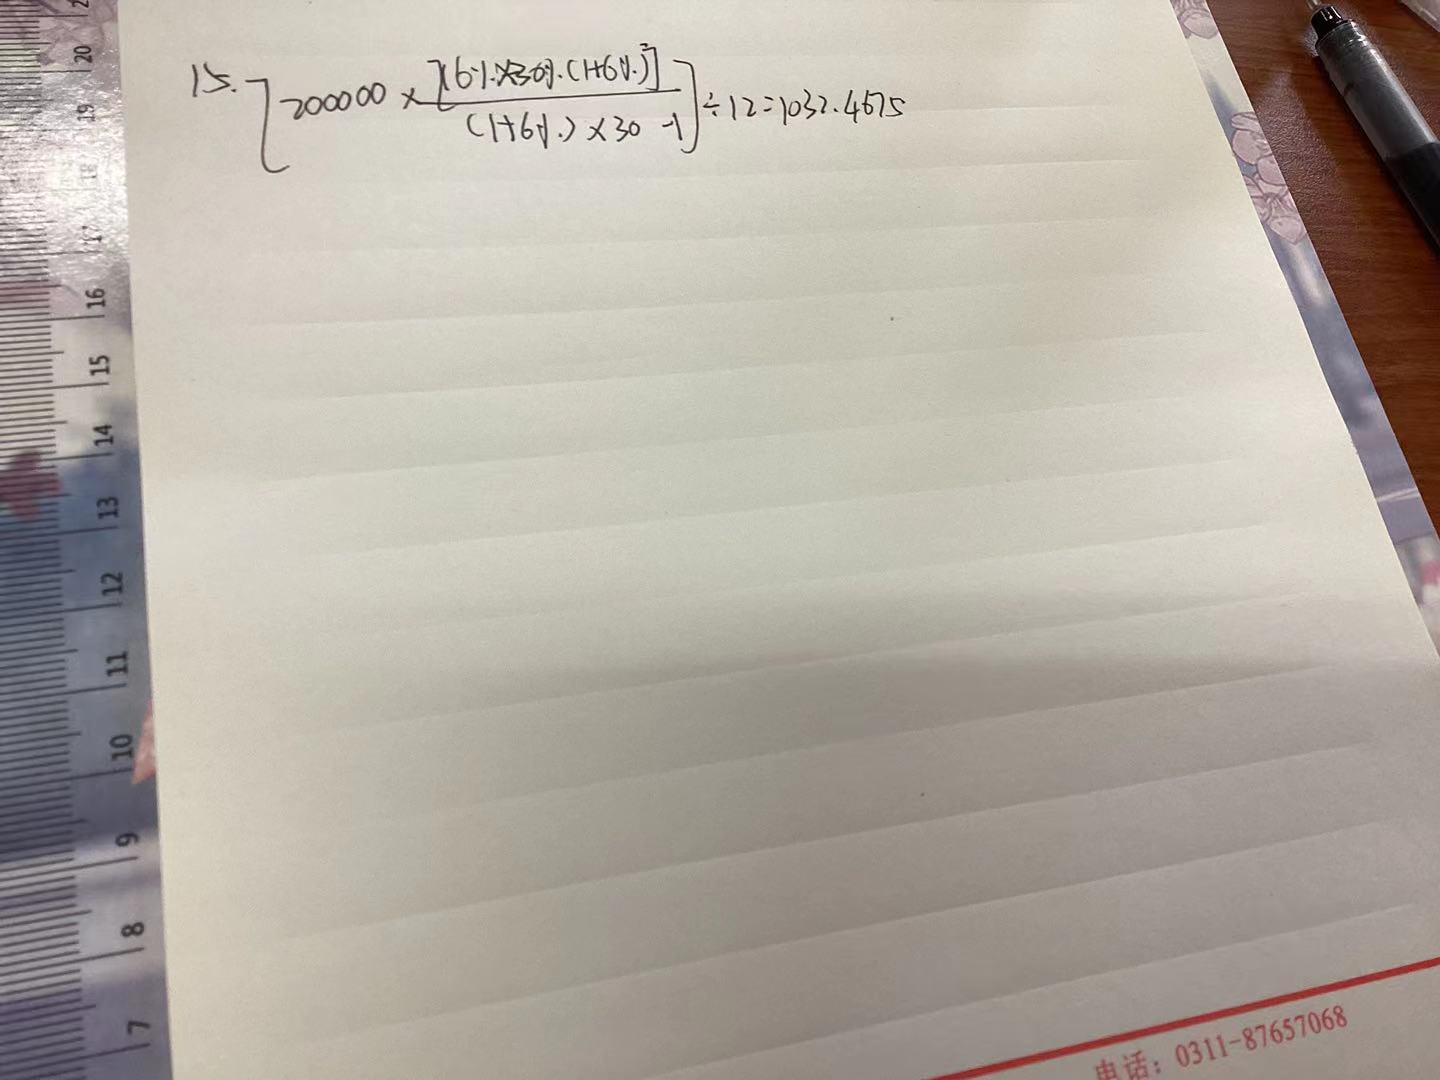 15. [200000 × [(6%×30%.(1+6%)²]
(1+6%)×30 -1 ] ÷12=1032.4675
20
19
18
17
16
15
14
13
12
11
10
9
8
7
电话: 0311-87657068